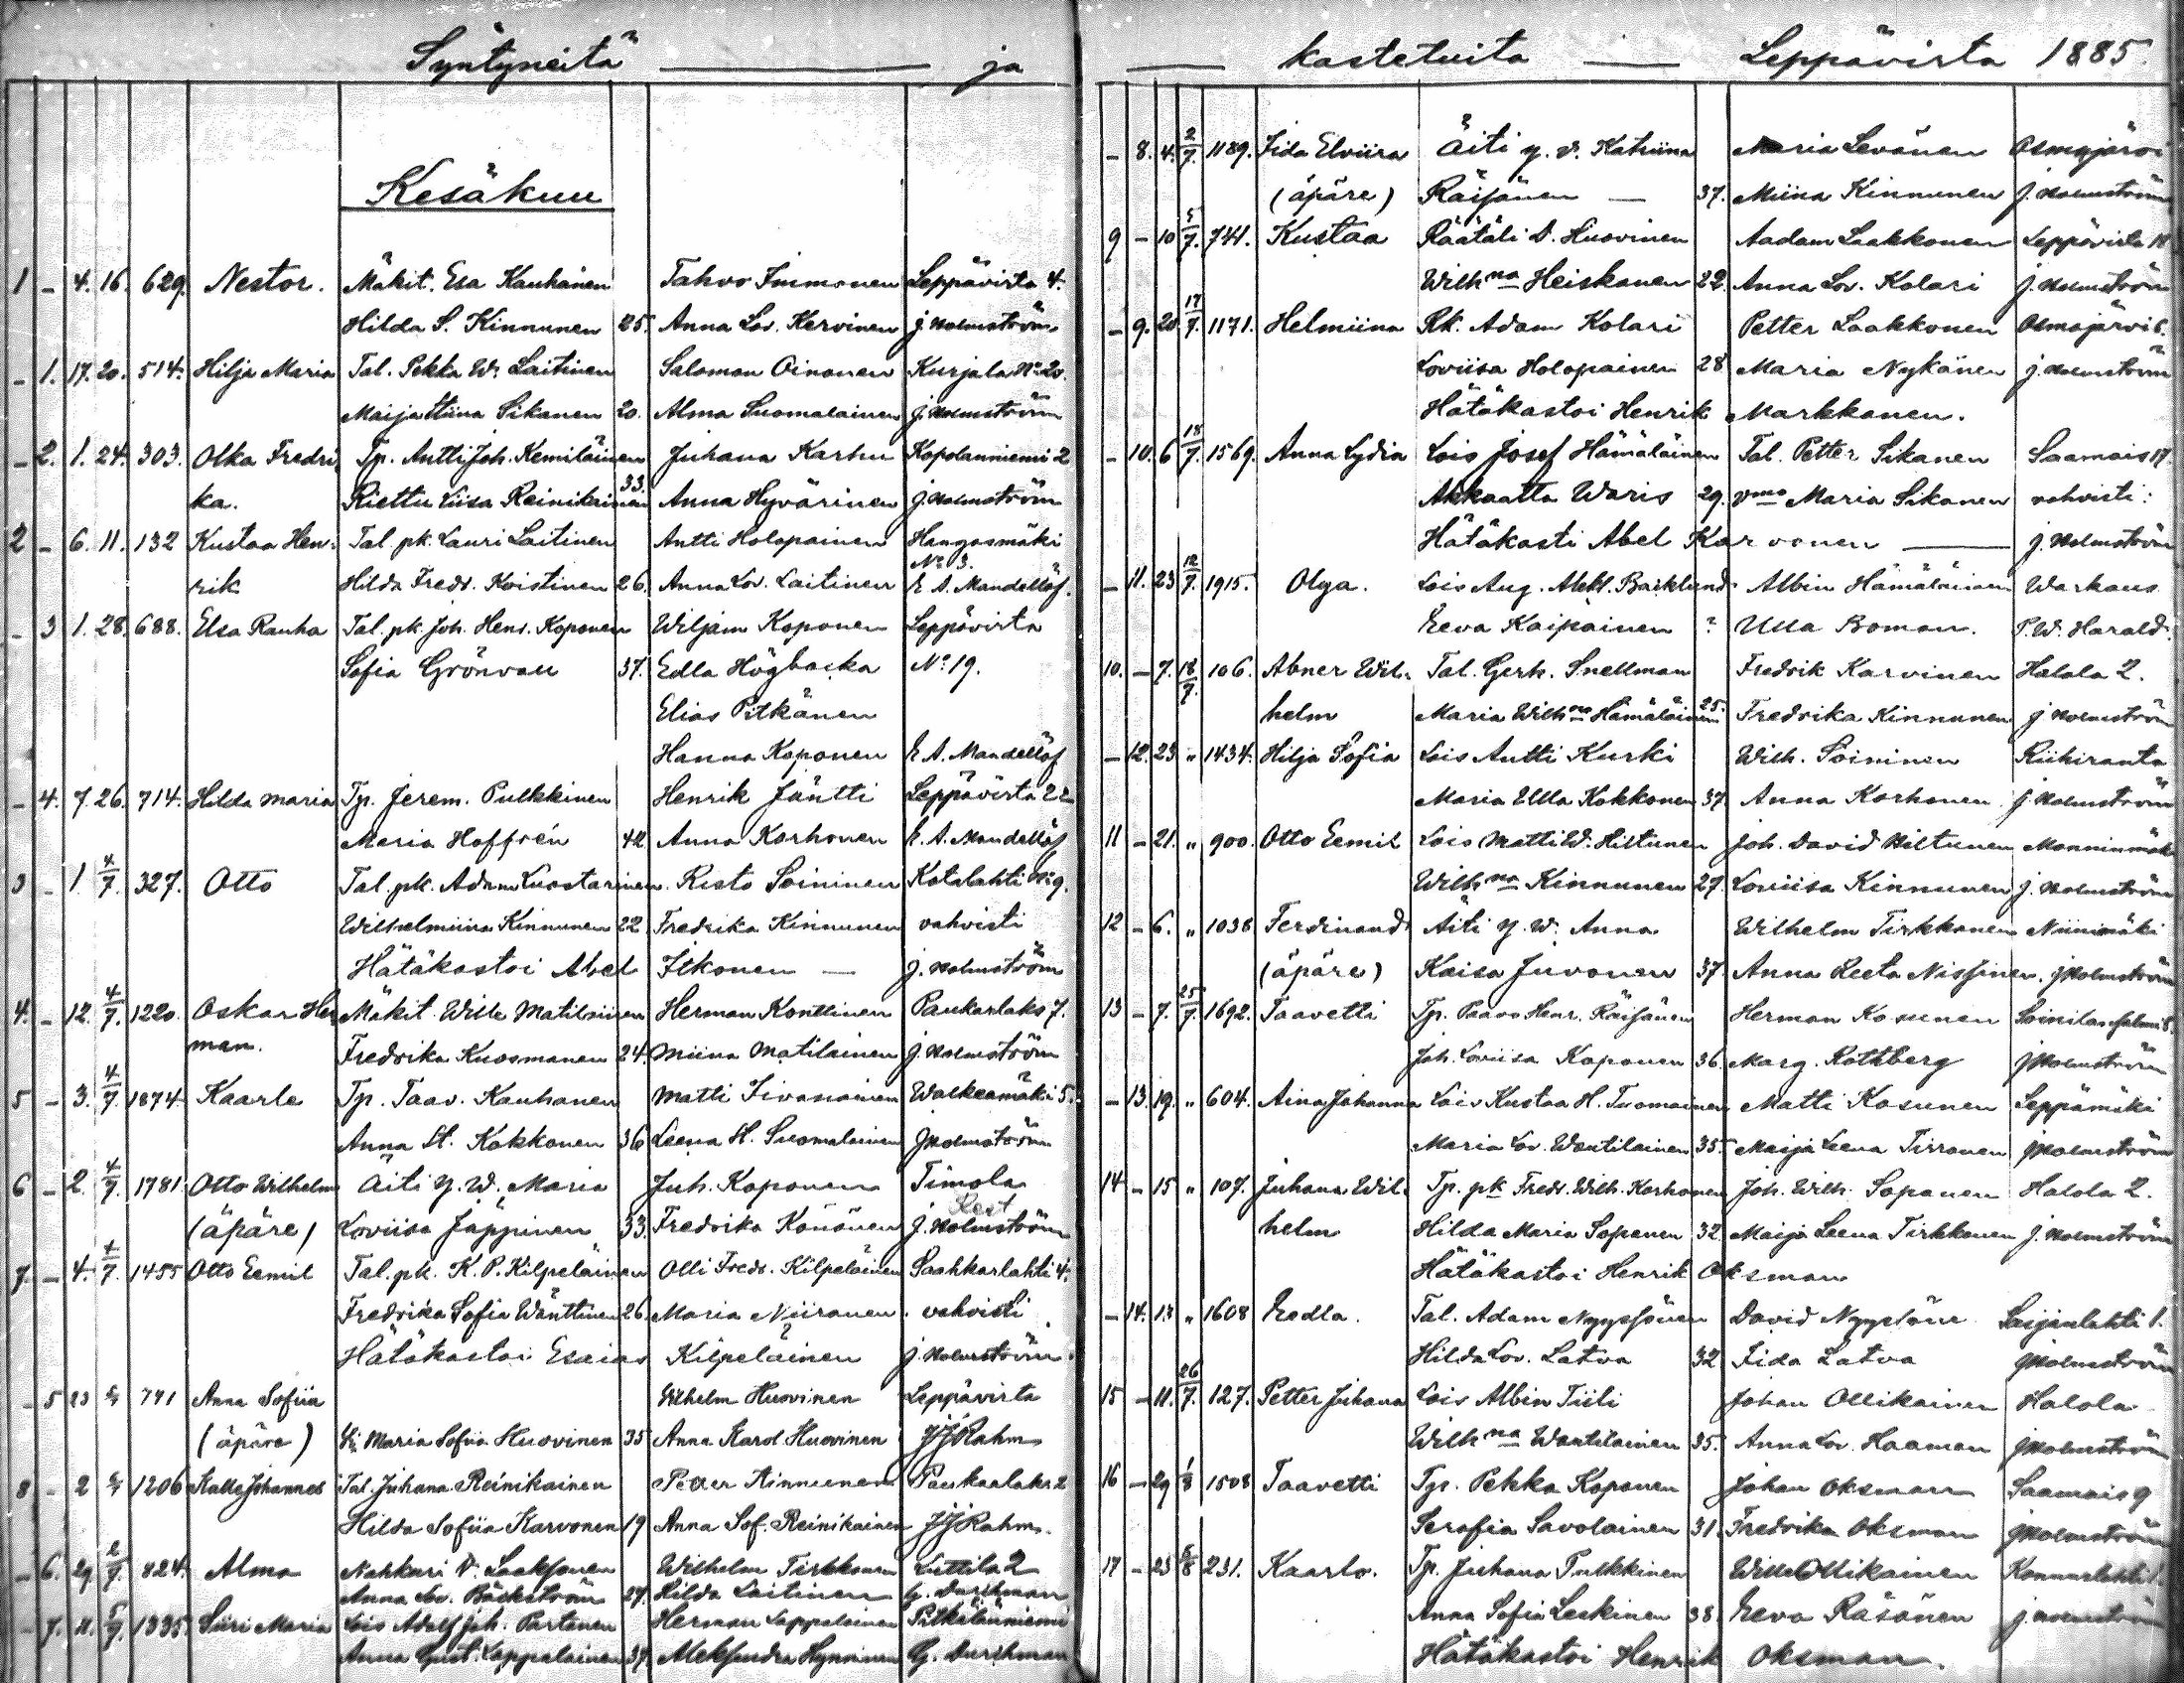 Syntyneitä ja
Kesäkuu
1 - 4. 16. 629. Nestor. Mäkit. Esa Kauhanen Tahvo Immonen Leppävirta 4.
Hilda S. Kinnunen 25. Anna Lov. Kervinen J. Holmström
- 1. 17. 20. 514. Hilja Maria Tal. Pekka W. Laitinen Salomon Oinonen Kurjala No 20.
Maija Stiina Sikanen 20. Alma Suomalainen J. Holmström
- 2. 1. 24. 303. Olka Fredri Tp. Antti Joh. Kemiläinen Juhana Karhu Kopolanniemi 2
ka. Riettu Liisa Reinikainen 33. Anna Hyvärinen J. Holmström
2 - 6. 11. 132 Kustaa Hen- Tal. pk. Lauri Laitinen Antti Holopainen Hangasmäki No 13.
rik Hilda Fredr. Koistinen 26. Anna Lov. Laitinen E. A. Mandellöf.
- 3 1. 28. 688. Elsa Rauha Tal. pk. Joh. Henr. Koponen Wiljam Koponen Leppävirta
Sofia Grönvall 37. Edla Högbacka No. 19.
Elias Pitkänen
Hanna Koponen E. A. Mandellöf
- 4. 7. 26. 714. Hilda Maria Tp. Jerem. Pulkkinen Henrik Jäntti Leppävirta 22
Maria Hoffrén 42 Anna Korhonen E. A. Mandellöf
3 - 1. 4/7. 327. Otto Tal. pk. Adam Luostarinen. Risto Soininen Kotalahti No 9.
Wilhelmiina Kinnunen 22. Fredrika Kinnunen vahvisti
Hätäkastoi Abel Itkonen — J. Holmström
4. - 12. 4/7. 1220. Oskar Her Mäkit. Wilh. Matilainen Herman Konttinen Paukarlaks 7.
man. Fredrika Kuosmanen 24. Miina Matilainen J. Holmström
5 - 3. 4/7. 1874. Kaarle Tp. Taav. Kauhanen Matti Iivanainen Walkeamäki 5.
Anna St. Kokkonen 36 Leena H. Suomalainen J Holmström
6 - 2. 4/7. 1781 Otto Wilhelm Äiti y. W. Maria Juh. Koponen Timola
(äpäre) Loviisa Jäppinen 33. Fredrika Könönen J. Holmström
7. - 4. 4/7. 1455 Otto Eemil Tal. pk. K. P. Kilpeläinen Olli Fredr. Kilpeläinen Saahkarlahti 4.
Fredrika Sofia Wänttinen 26. Maria Niiranen vahvisti
Hätäkastoi Esaias Kilpeläinen J. Holmström
- 5 23 771 Anna Sofiia Wilhelm Huovinen Leppävirta
(äpäre) Maria Sofiia Huovinen 35 Anna Karol. Huovinen J J Rahm
8 - 2 1206 Kalle Johannes Tal. Juhana Reinikainen Petter Kinnunen Paukarlaks 2
Hilda Sofiia Karvonen 19 Anna Sof. Reinikainen J J Rahm.
- 6. 29. 2/7. 824. Alma Nahkuri V. Laaksonen Wilhelm Tirkkonen Luttila 2
Anna Lov. Bäckström 27. Hilda Laitinen G. Durchman
- 7. 11. 5/7. 1335. Siiri Maria Lois Adolf Joh. Partanen Herman Lappalainen Pitkälänniemi
Anna Gust. Lappalainen 37. Aleksandra Hynninen G. Durchman
kastetuita Leppävirta 1885.
- 8. 4. 2/7. 1189. Iida Elviira Äiti y. v. Katriina Maria Levänen Osmajärvi
(äpäre) Räisänen — 37. Miina Kinnunen J. Holmström
9 - 10 5/7. 741. Kustaa Räätäli D. Huovinen Aadam Laakkonen Leppävirta 18
Wilhna Heiskanen 22. Anna Lov. Kolari J. Holmström
- 9. 20. 17/7. 1171. Helmiina Rk. Adam Kolari Petter Laakkonen Osmajärvi 6.
Loviisa Holopainen 28 Maria Nykänen J. Holmström
Hätäkastoi Henrik Markkanen.
- 10. 6 18/7. 1569. Anna Lydia Lois Josef Hämäläinen Tal. Petter Sikanen Saamais 17.
Akkaatta Waris 29. vmo Maria Sikanen vahvisti:
Hätäkasti Abel Karvonen — J. Holmström
- 11. 23 12/7. 1915. Olga. Lois Aug. Alekl. Backlund. Albin Hämäläinen Warkaus
Eeva Kaipainen ? Ulla Boman. P. W. Harald.
10. - 7. 18/7. 106. Abner Wil- Tal. Gerh. Snellman Fredrik Karvinen Halola 2.
helm Maria Wilhna Hämäläinen 25. Fredrika Kinnunen J Holmström
- 12. 23 " 1434. Hilja Sofia Lois Antti Kurki Wilh. Soininen Riihiranta
Maria Ulla Kokkonen 37. Anna Korhonen J. Holmström
11 - 21. " 900. Otto Eemil Lois Matti W. Hiltunen Joh. David Hiltunen Monninmäki
Wilhna Kinnunen 27. Loviisa Kinnunen J. Holmström
12 - 6. " 1038 Ferdinand Äiti y. w. Anna Wilhelm Tirkkonen Niinimäki
(äpäre) Kaisa Juvonen 37 Anna Reeta Nissinen. J Holmström
13 - 7. 25/7. 1692. Taavetti Tp. Paavo Henr. Räisänen Herman Kosunen Soinilansalmi 8
Joh. Loviisa Koponen 36. Marg. Rothberg J Holmström
- 13. 19. " 604. Aina Johanna Lois Kustaa H. Tuomainen Matti Kosunen Leppämäki
Maria Lov. Wäntilainen 35. Maija Leena Tirronen J Holmström
14 - 15 " 107. Juhana Wil- Tp. pk Fredr. Wilh. Korhonen Joh. Wilh. Sopanen Halola 2.
helm Hilda Maria Sopanen 32 Maija Leena Tirkkonen J. Holmström
Hätäkastoi Henrik Oksman
- 14. 13 " 1608 Eedla. Tal. Adam Nyyssönen David Nyyssönen Saijanlahti 1.
Hilda Lov. Latva 32 Iida Latva J Holmström
15 - 11. 26/7. 127. Petter Juhana Lois Albin Tiili Johan Ollikainen Halola
Wilhna Wäntilainen 35. Anna Lov. Haaman J Holmström
16 - 29 1/8 1508 Taavetti Tp. Pekka Koponen Johan Oksman Saamais 9
Serafia Savolainen 31. Fredrika Oksman J Holmström
17 - 23 8/8 231. Kaarlo. Tp. Juhana Pulkkinen Wilh Ollikainen Konnuslahti 1.
Anna Sofia Leskinen 38. Eeva Räsänen J. Holmström
Hätäkastoi Henrik Oksman.